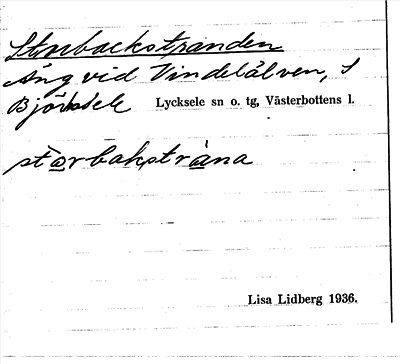 Storbackstranden
Äng vid Vindelälven, I
Björksele Lycksele sn o. tg, Västerbottens l.
storbakstràna
Lisa Lidberg 1936.